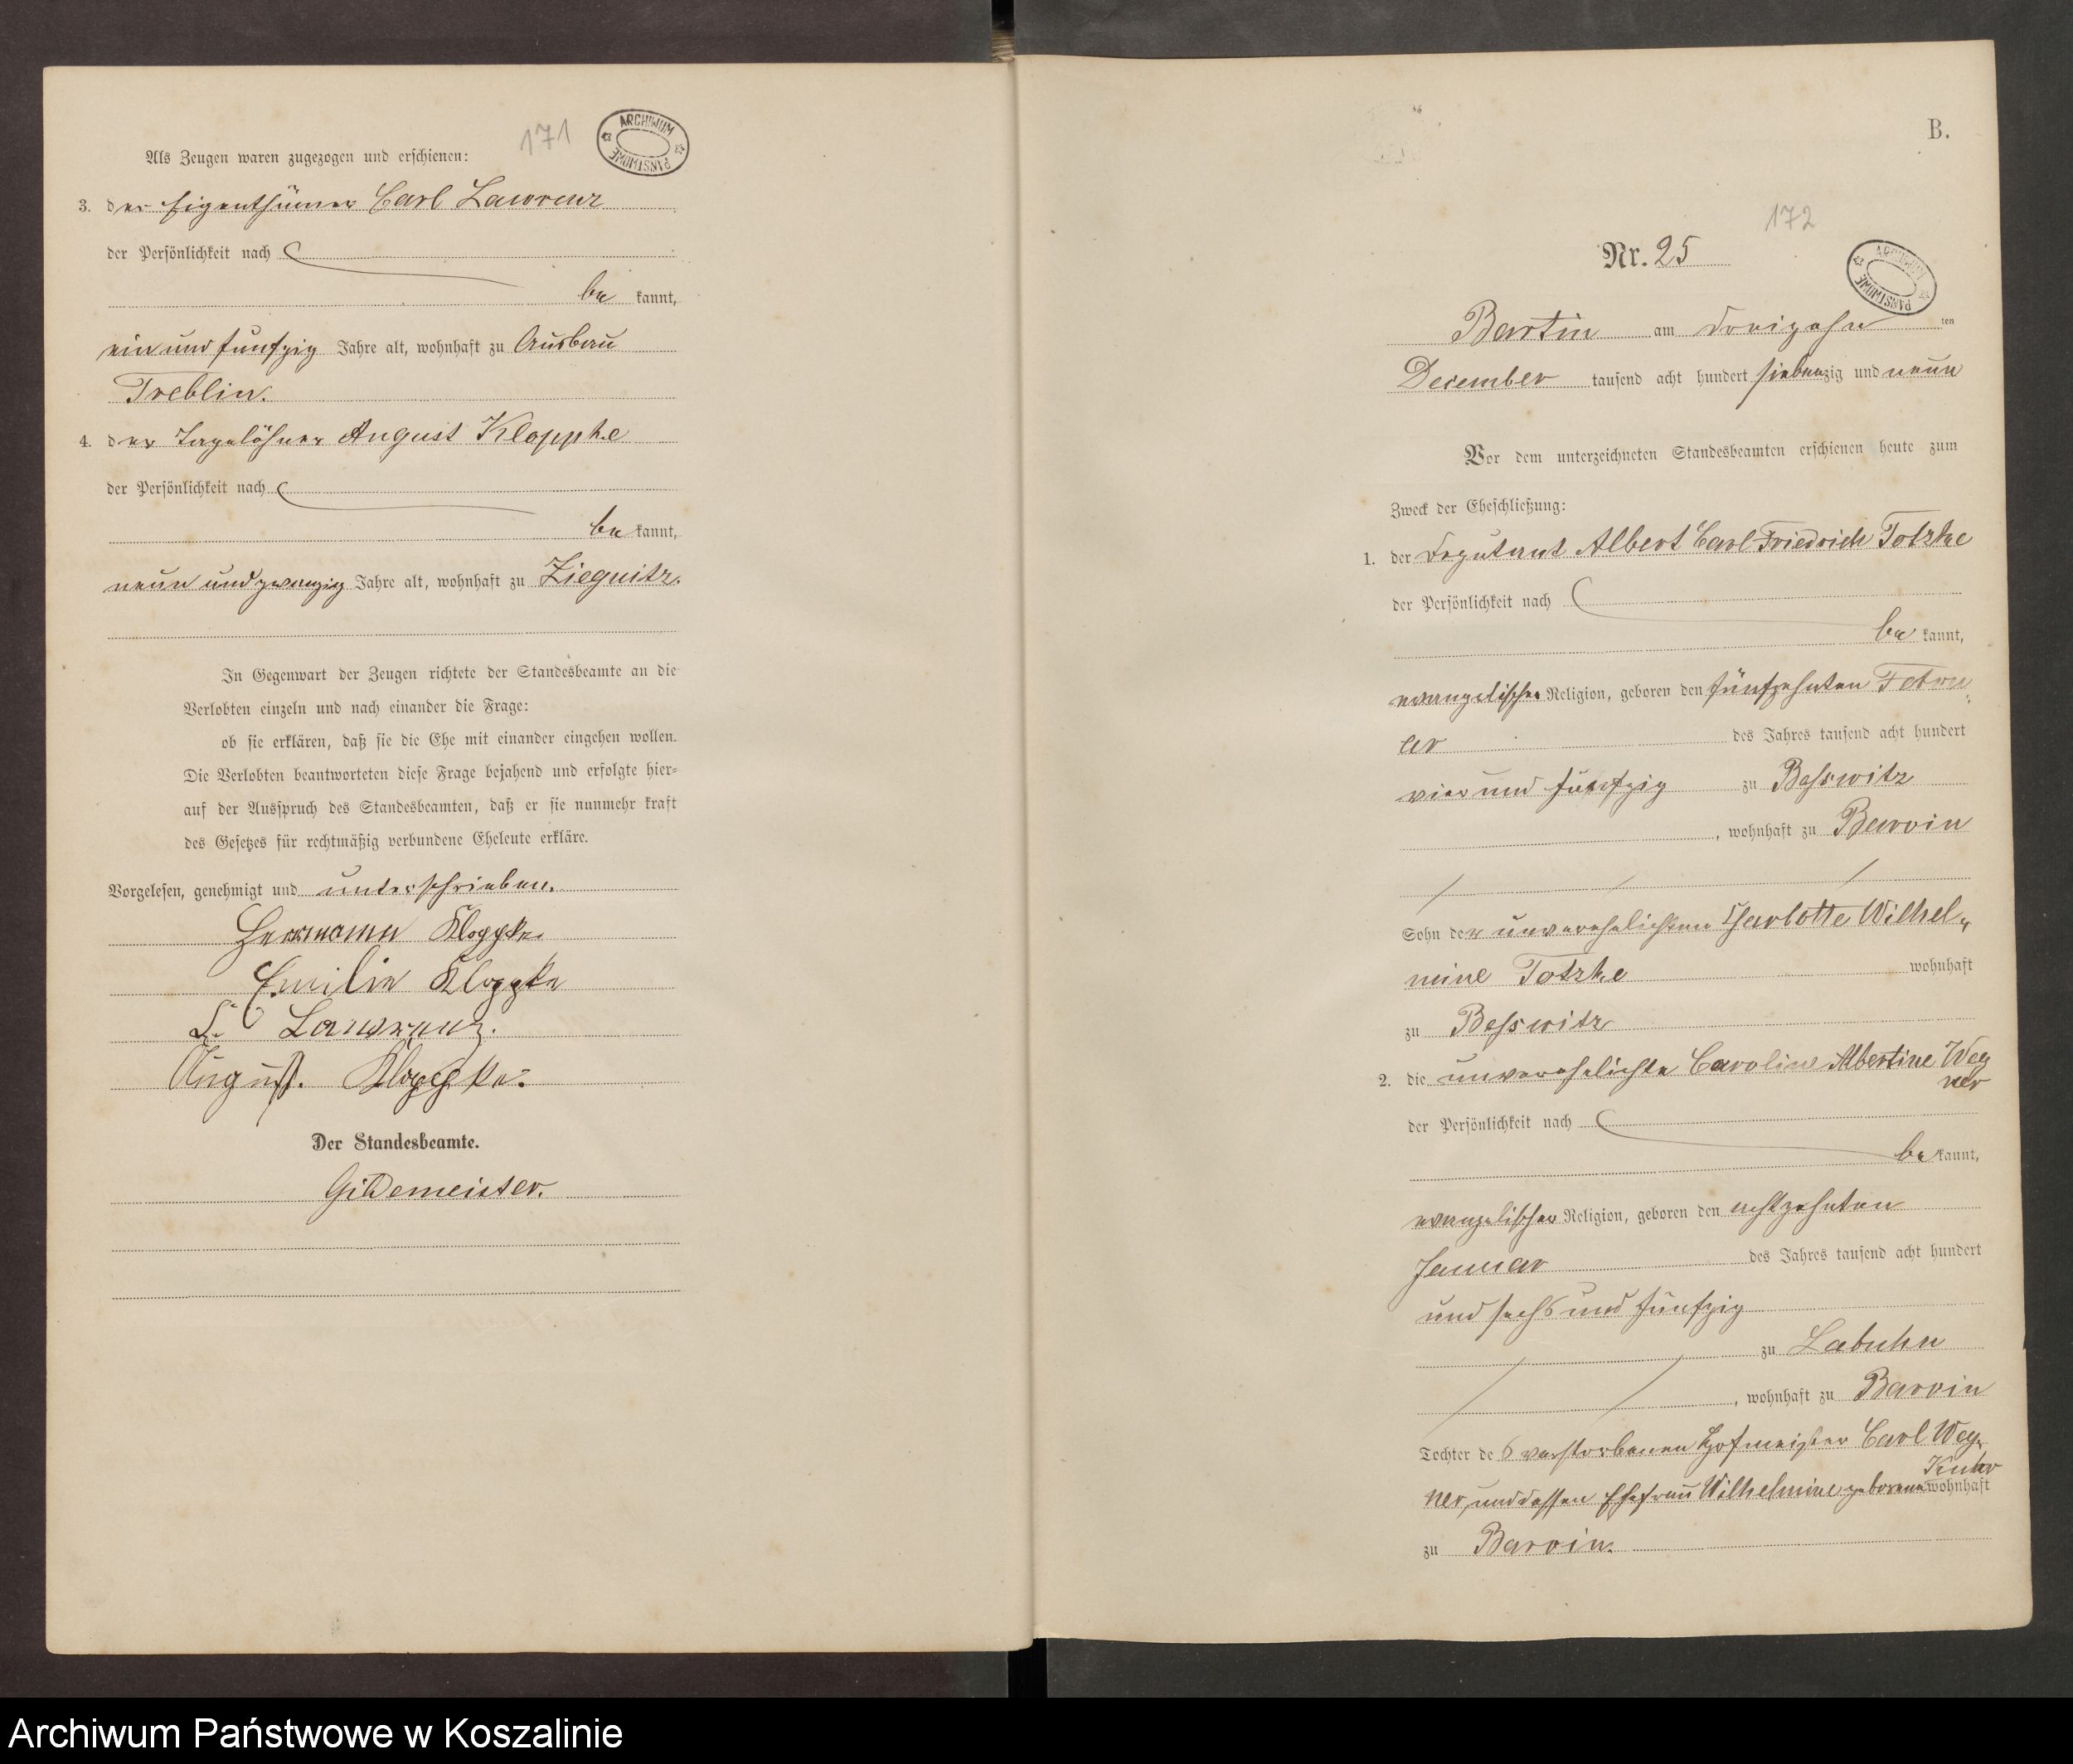 171
ARCHIWUM PAŃSTWOWE
Als Zeugen waren zugezogen und erschienen:
3. der Eigenthümer Carl Lawrenz
der Persönlichkeit nach
be kannt,
ein und fünfzig Jahre alt, wohnhaft zu Ausbau
Treblin.
4. der Tagelöhner August Kloppke
der Persönlichkeit nach
be kannt,
neun und zwanzig Jahre alt, wohnhaft zu Ziegnitz.
In Gegenwart der Zeugen richtete der Standesbeamte an die
Verlobten einzeln und nach einander die Frage:
ob sie erklären, daß sie die Ehe mit einander eingehen wollen.
Die Verlobten beantworteten diese Frage bejahend und erfolgte hier-
auf der Ausspruch des Standesbeamten, daß er sie nunmehr kraft
des Gesetzes für rechtmäßig verbundene Eheleute erkläre.
Vorgelesen, genehmigt und unterschrieben.
Herrmann Kloppke.
Emilie Kloppke
C. Lawrenz.
August. Kloppke.
Der Standesbeamte.
Gildemeister.
B.
172
Nr. 25
ARCHIWUM PAŃSTWOWE
Bartin am dreizehn ten
December tausend acht hundert siebenzig und neun
Vor dem unterzeichneten Standesbeamten erschienen heute zum
Zweck der Eheschließung:
1. der Deputant Albert Carl Friedrich Totzke
der Persönlichkeit nach
be kannt,
evangelischer Religion, geboren den fünfzehnten Febru-
ar des Jahres tausend acht hundert
vier und fünfzig zu Besswitz
, wohnhaft zu Barvin
Sohn der unverehelichten Charlotte Wilhel-
mine Totzke wohnhaft
zu Besswitz
2. die unverehelichte Caroline Albertine Weg
ner
der Persönlichkeit nach
be kannt,
evangelischer Religion, geboren den achtzehnten
Januar des Jahres tausend acht hundert
und sechs und fünfzig
zu Labuhn
, wohnhaft zu Barvin
Tochter des verstorbenen Hofmeister Carl Weg-
ner, und dessen Ehefrau Wilhelmine geborene wohnhaft
zu Barvin.
Archiwum Państwowe w Koszalinie